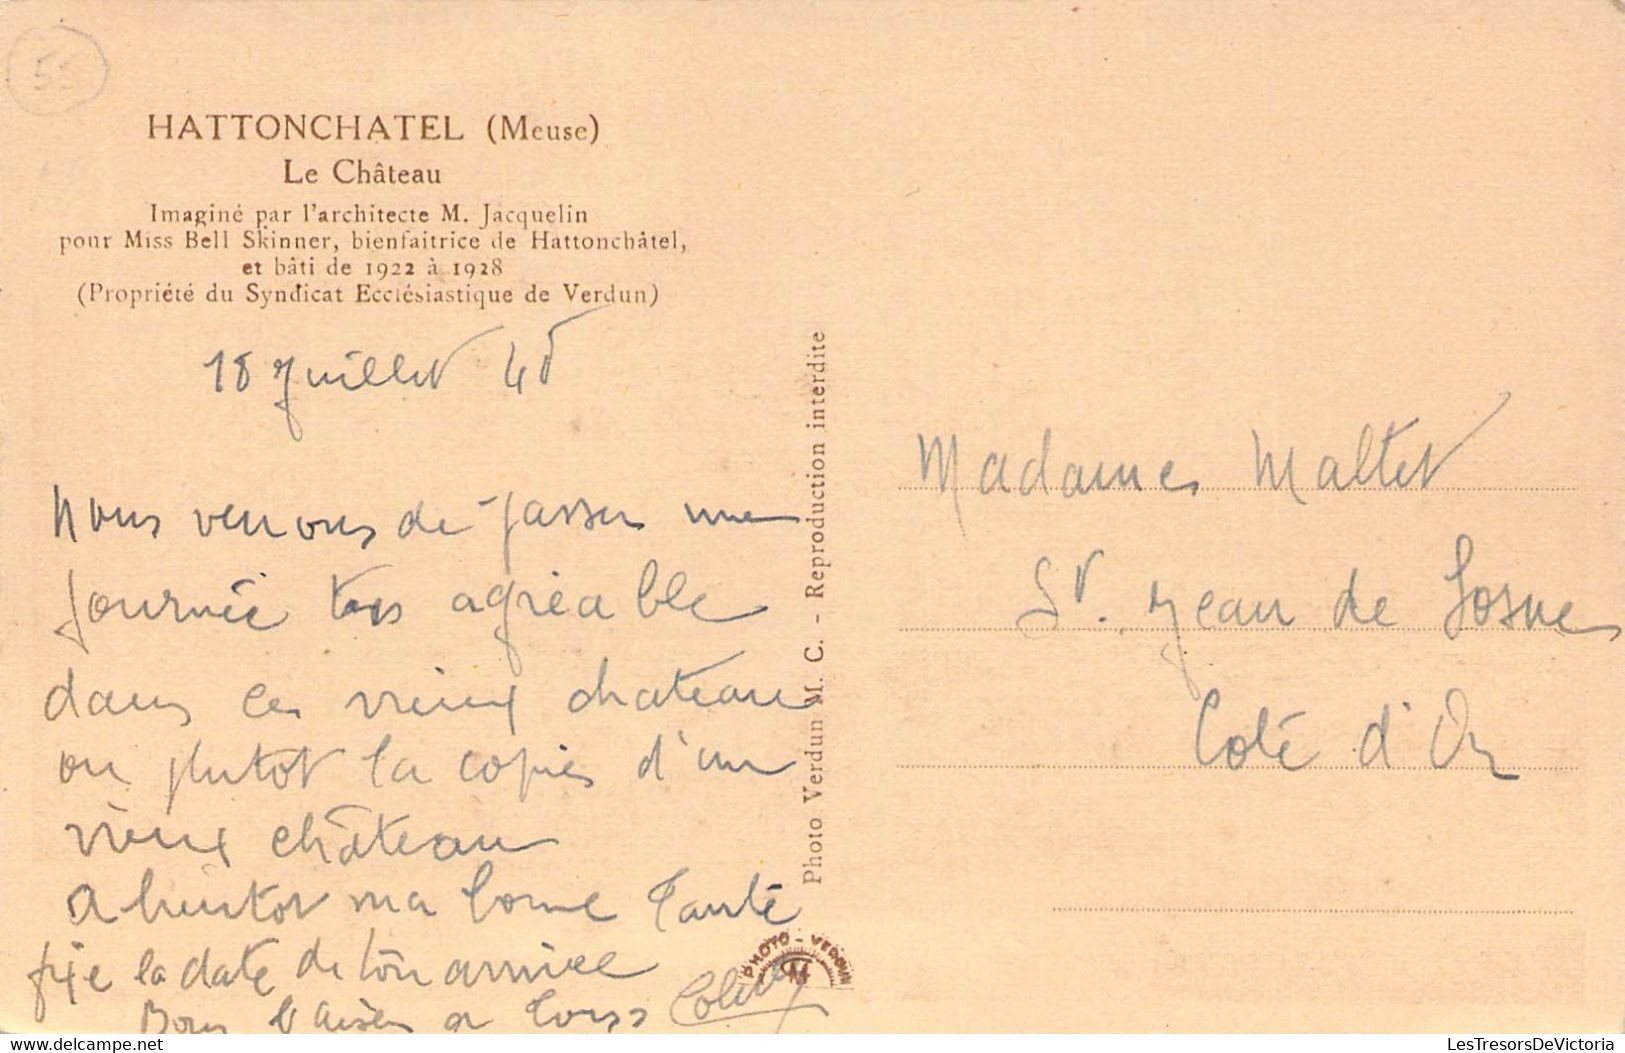 55
HATTONCHATEL (Meuse)
Le Château
Imaginé par l'architecte M. Jacquelin
pour Miss Bell Skinner, bienfaitrice de Hattonchâtel,
et bâti de 1922 à 1928
(Propriété du Syndicat Ecclésiastique de Verdun)
18 Juillet 45
Nous venons de passer une
journée très agréable
dans ce vieux chateau
ou plutot la copie d'un
vieux château
A bientot ma bonne Tante
fixe la date de ton arrivée
Bons baisers a tous
Photo Verdun M. C. - Reproduction interdite
PHOTO - VERDUN
Madame Maltet
St. Jean de Losne
Coté d'Or
LesTresorsDeVictoria
https://www.delcampe.net